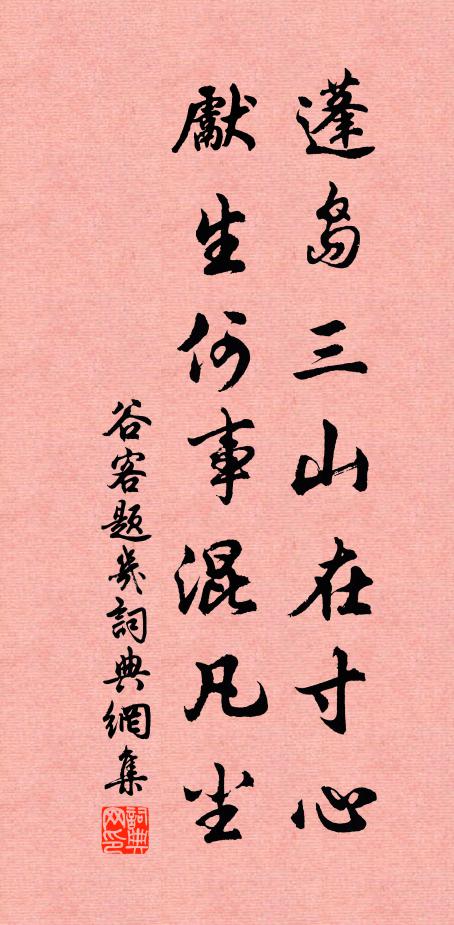 蓬島三山在寸心
獻生何事混凡尘
谷客題幾詞典網集
詞典网印